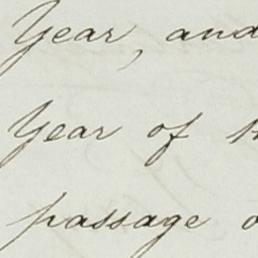 Year, and
Year of
passage